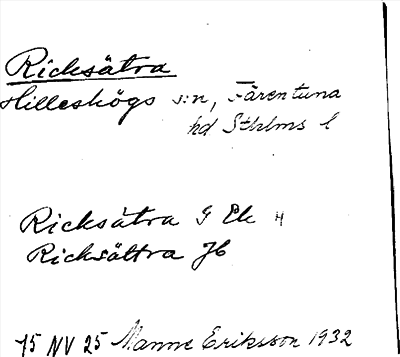 Ricksätra
Hilleshögs s:n, Färentuna
hd Sthlms l
Ricksätra G Ek 4
Ricksättra JK
75 NV 25 Manne Eriksson 1932